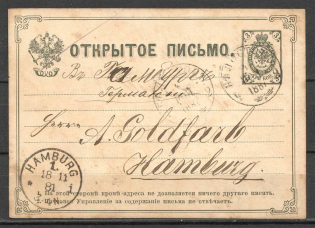 ОТКРЫТОЕ ПИСЬМО.
Въ Гамбургъ
Германія
Herrn
A. Goldfarb
Hamburg.
HAMBURG
1
18 11
81
На этой сторонѣ кромѣ адреса не дозволяется ничего другаго писать.
Почтовое Управленіе за содержаніе письма не отвѣчаетъ.